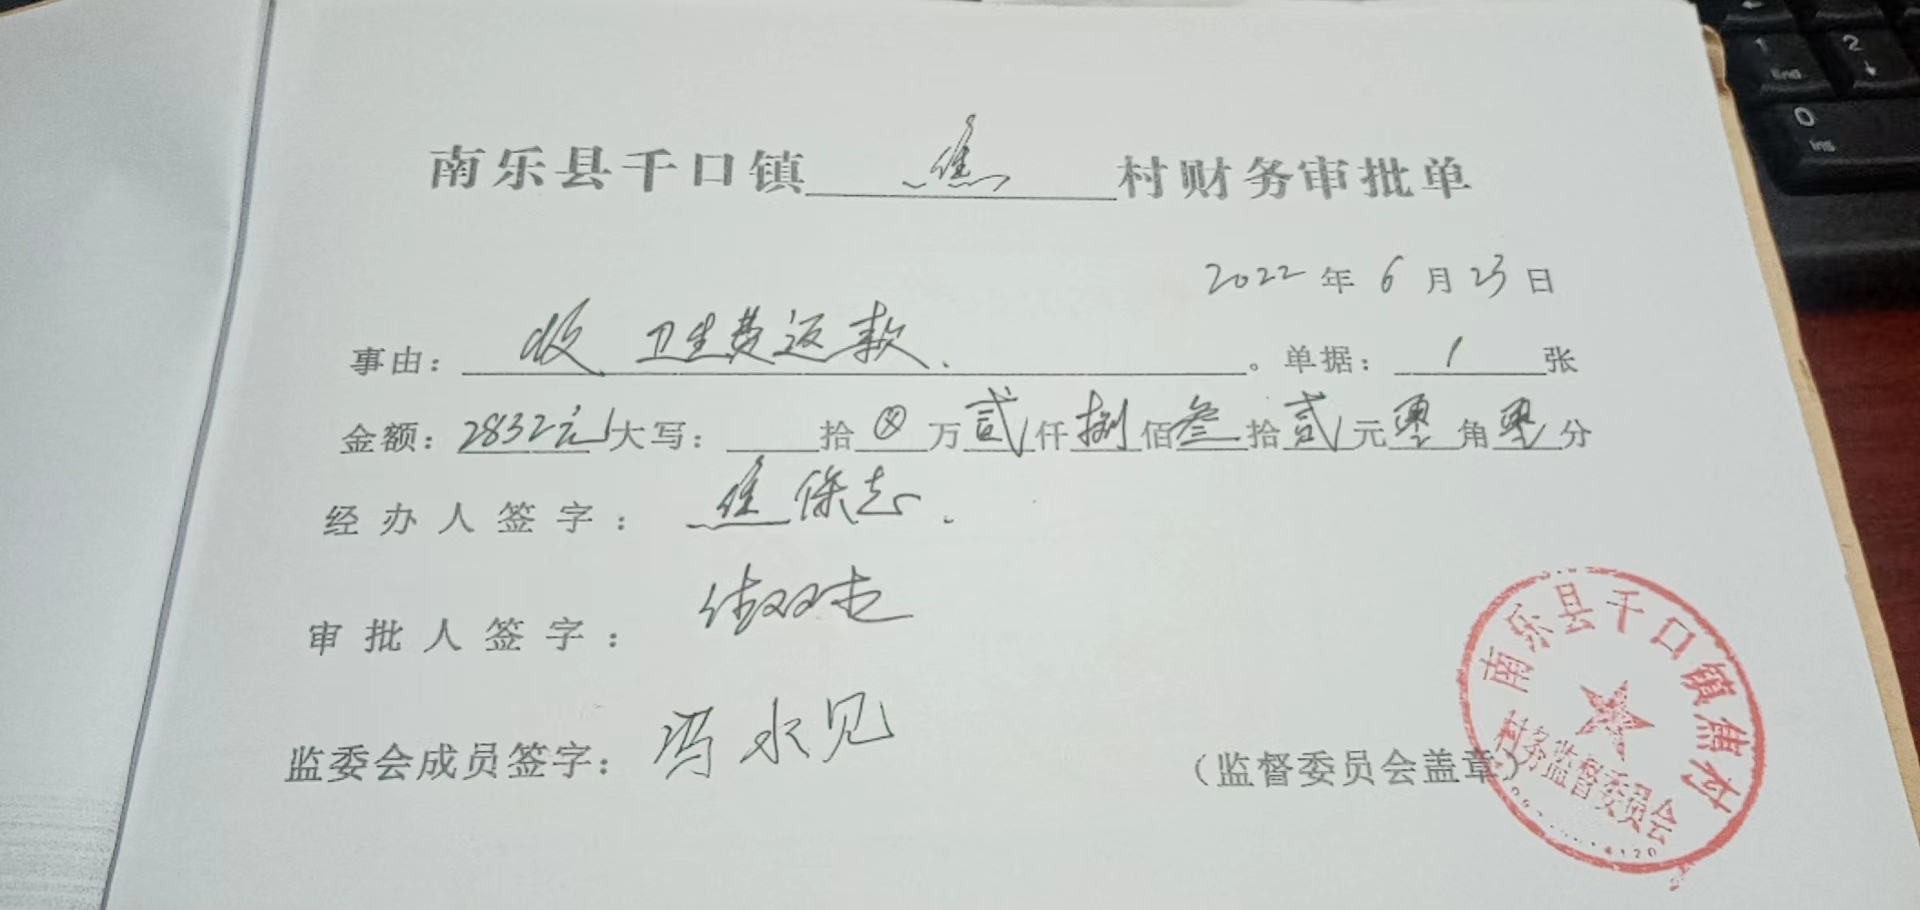 南乐县千口镇 焦 村财务审批单
2022 年 6 月 23 日
事由: 收 卫生费返款. 。单据: 1 张
金额: 2832元 大写: 拾 ⊗ 万 贰 仟 捌 佰 叁 拾 贰 元 零 角 零 分
经办人签字: 焦保志.
审批人签字:
监委会成员签字: 冯水见
(监督委员会盖章)
南乐县千口镇焦村
村务监督委员会